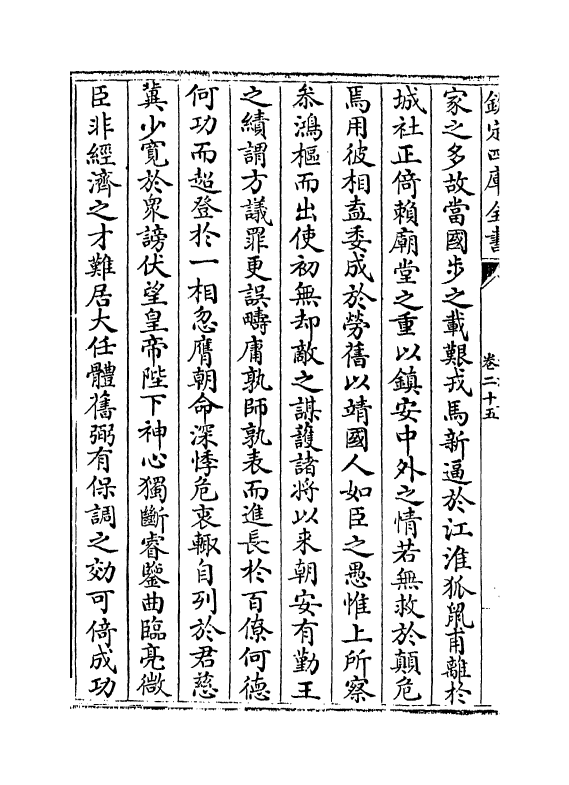 欽定四庫全書
卷二十五
家之多故當國步之載艱戎馬新逼於江淮狐鼠甫離於
城社正倚賴廟堂之重以鎮安中外之情若無救於顛危
焉用彼相盍委成於勞舊以靖國人如臣之愚惟上所察
叅鴻樞而出使初無却敵之謀護諸將以来朝安有勤王
之績謂方議罪更誤疇庸孰師孰表而進長於百僚何德
何功而超登於一相忽膺朝命深悸危衷輙自列於君慈
冀少寛於衆謗伏望皇帝陛下神心獨斷睿鑒曲臨亮微
臣非經濟之才難居大任體舊弼有保調之効可倚成功